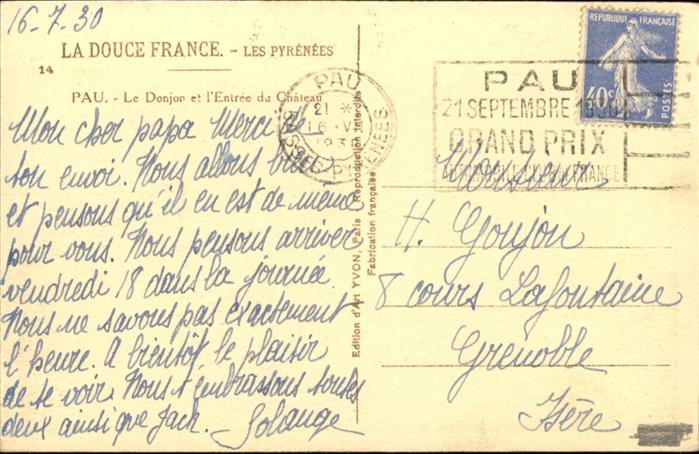 16-7.30
LA DOUCE FRANCE. - LES PYRÉNÉES
14
PAU. - Le Donjon et l'Entrée du Château
Mon cher papa Merci de
ton envoi. Nous allons bien
et pensons qu'il en est de même
pour vous. Nous pensons arriver
vendredi 18 dans la journée
Nous ne savons pas exactement
l'heure. A bientôt le plaisir
de te voir. Nous t'embrassons toutes
deux ainsi que Jack. Solange
Edition d'Art YVON, Paris Reproduction interdite
Fabrication française
PAU
21 *
PYRENEES
RÉPUBLIQUE FRANÇAISE
40c
POSTES
PAU
21 SEPTEMBRE 1930
GRAND PRIX
FRANCE
Monsieur
H. Goujon
8 cours Lafontaine
Grenoble
Isère